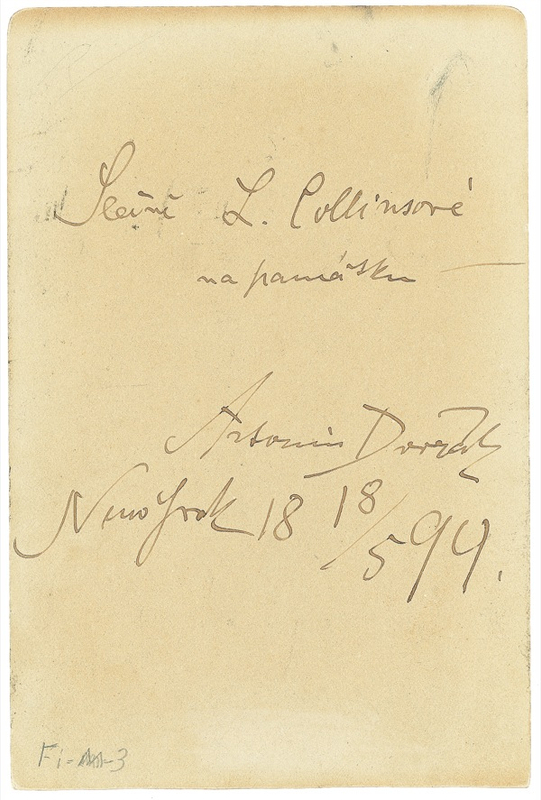 Slečně L. Collinsové
na památku
Antonín Dvořák
New York 18 18/5 94.